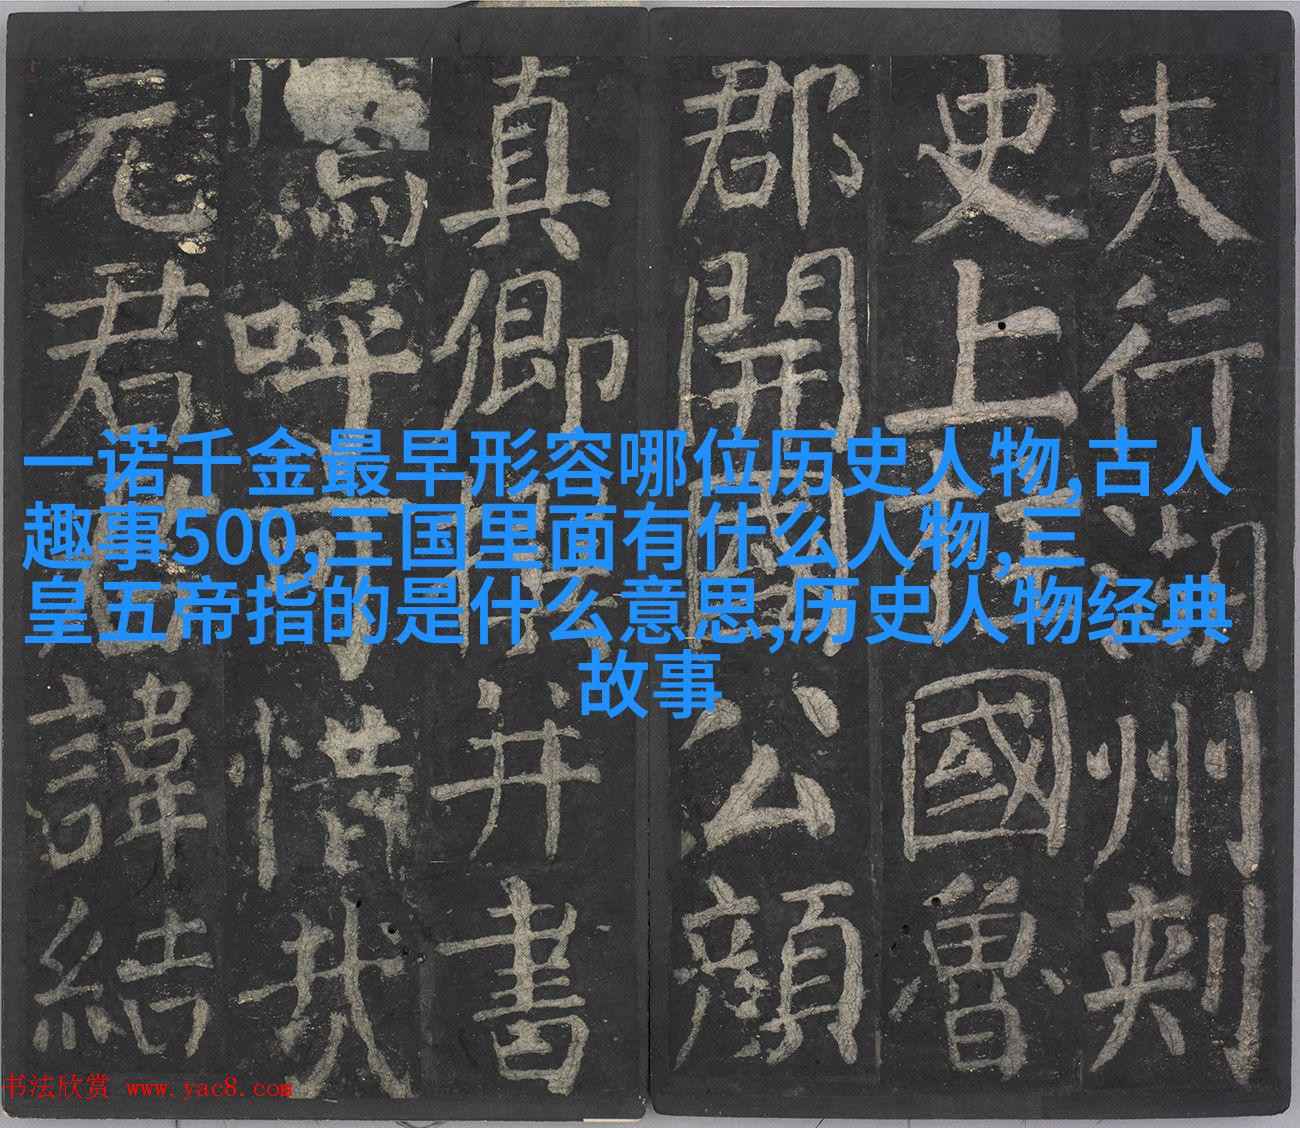 夫行湖州刺
史上柱國魯
郡開國公顏
真卿撰并書
嗚呼可惜哉
元君諱結
一诺千金最早形容哪位历史人物,古人
趣事500,三国里面有什么人物,三
皇五帝指的是什么意思,历史人物经典
故事
书法欣赏 www.yac8.com